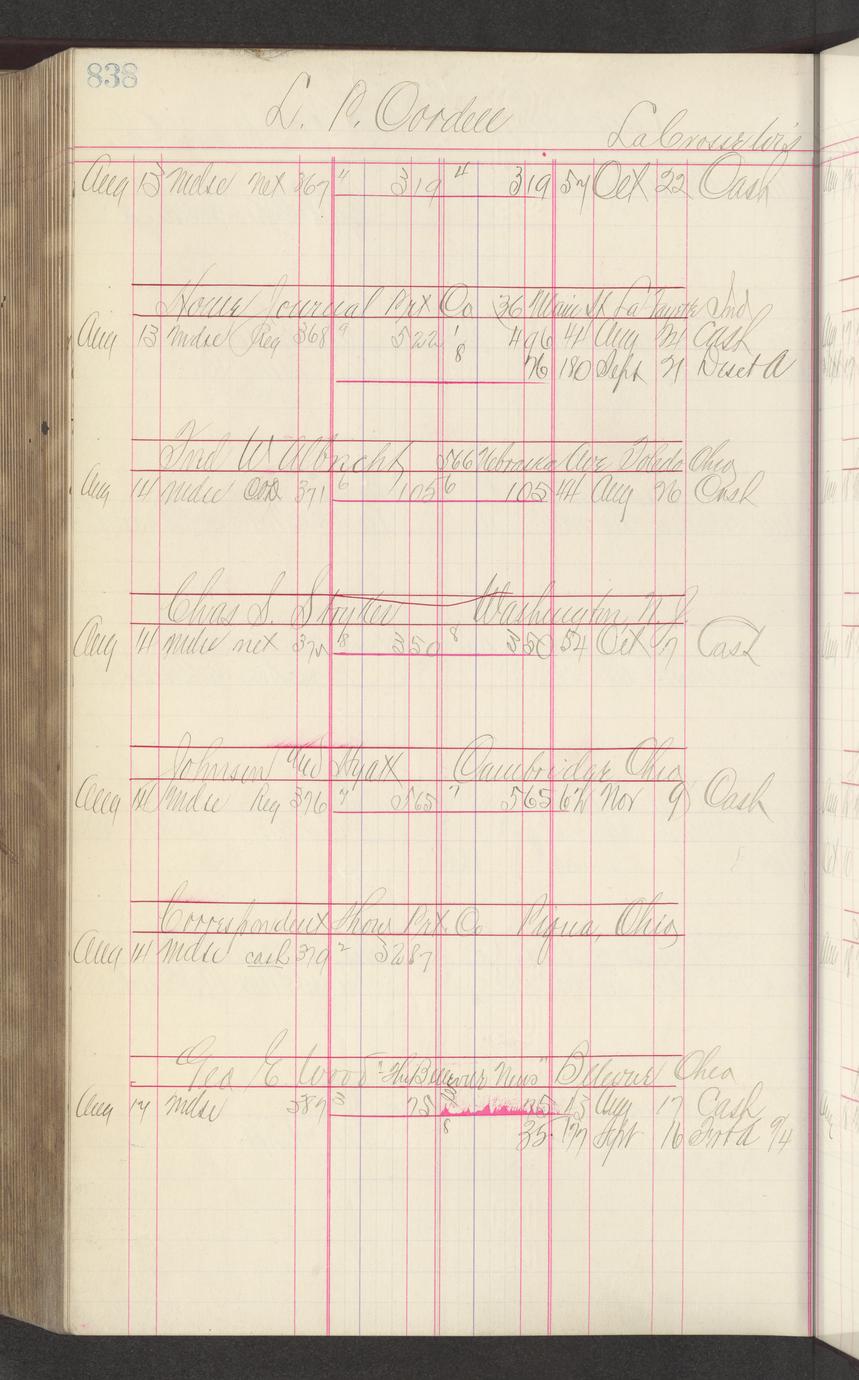 838
L. P. Cordell LaCrosse Wis
Aug 13 Mdse net 367 4 319 4 319 57 Oct 22 Cash
Home Journal Prt Co 36 Main St La Fayette Ind
Aug 13 Mdse Reg 368 9 522 1 496 41 Aug 21 Cash
8 26 180 Sept 21 Disct A
W Albrecht 566 Nebraska Ave Toledo Ohio
Aug 14 Mdse COD 371 6 105 6 105 44 Aug 26 Cash
Chas S. Stryker Washington, N. J.
Aug 14 Mdse net 8 350 8 350 54 Oct 7 Cash
Johnson and Hyatt Cambridge Ohio
Aug 14 Mdse Reg 376 7 565 7 565 62 Nov 9 Cash
Correspondent Show Prt. Co Piqua, Ohio
Aug 14 Mdse cash 379 2 3287
Geo E Wood "The Bellevue News" Bellevue Ohio
Aug 17 Mdse 387 3 75 15 Aug 17 Cash
8 35 177 Sept 16 Frt A 9/4